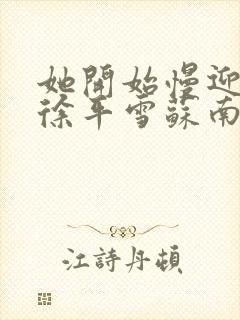 她開始慢迎
徐平雪蘇南
江詩丹頓